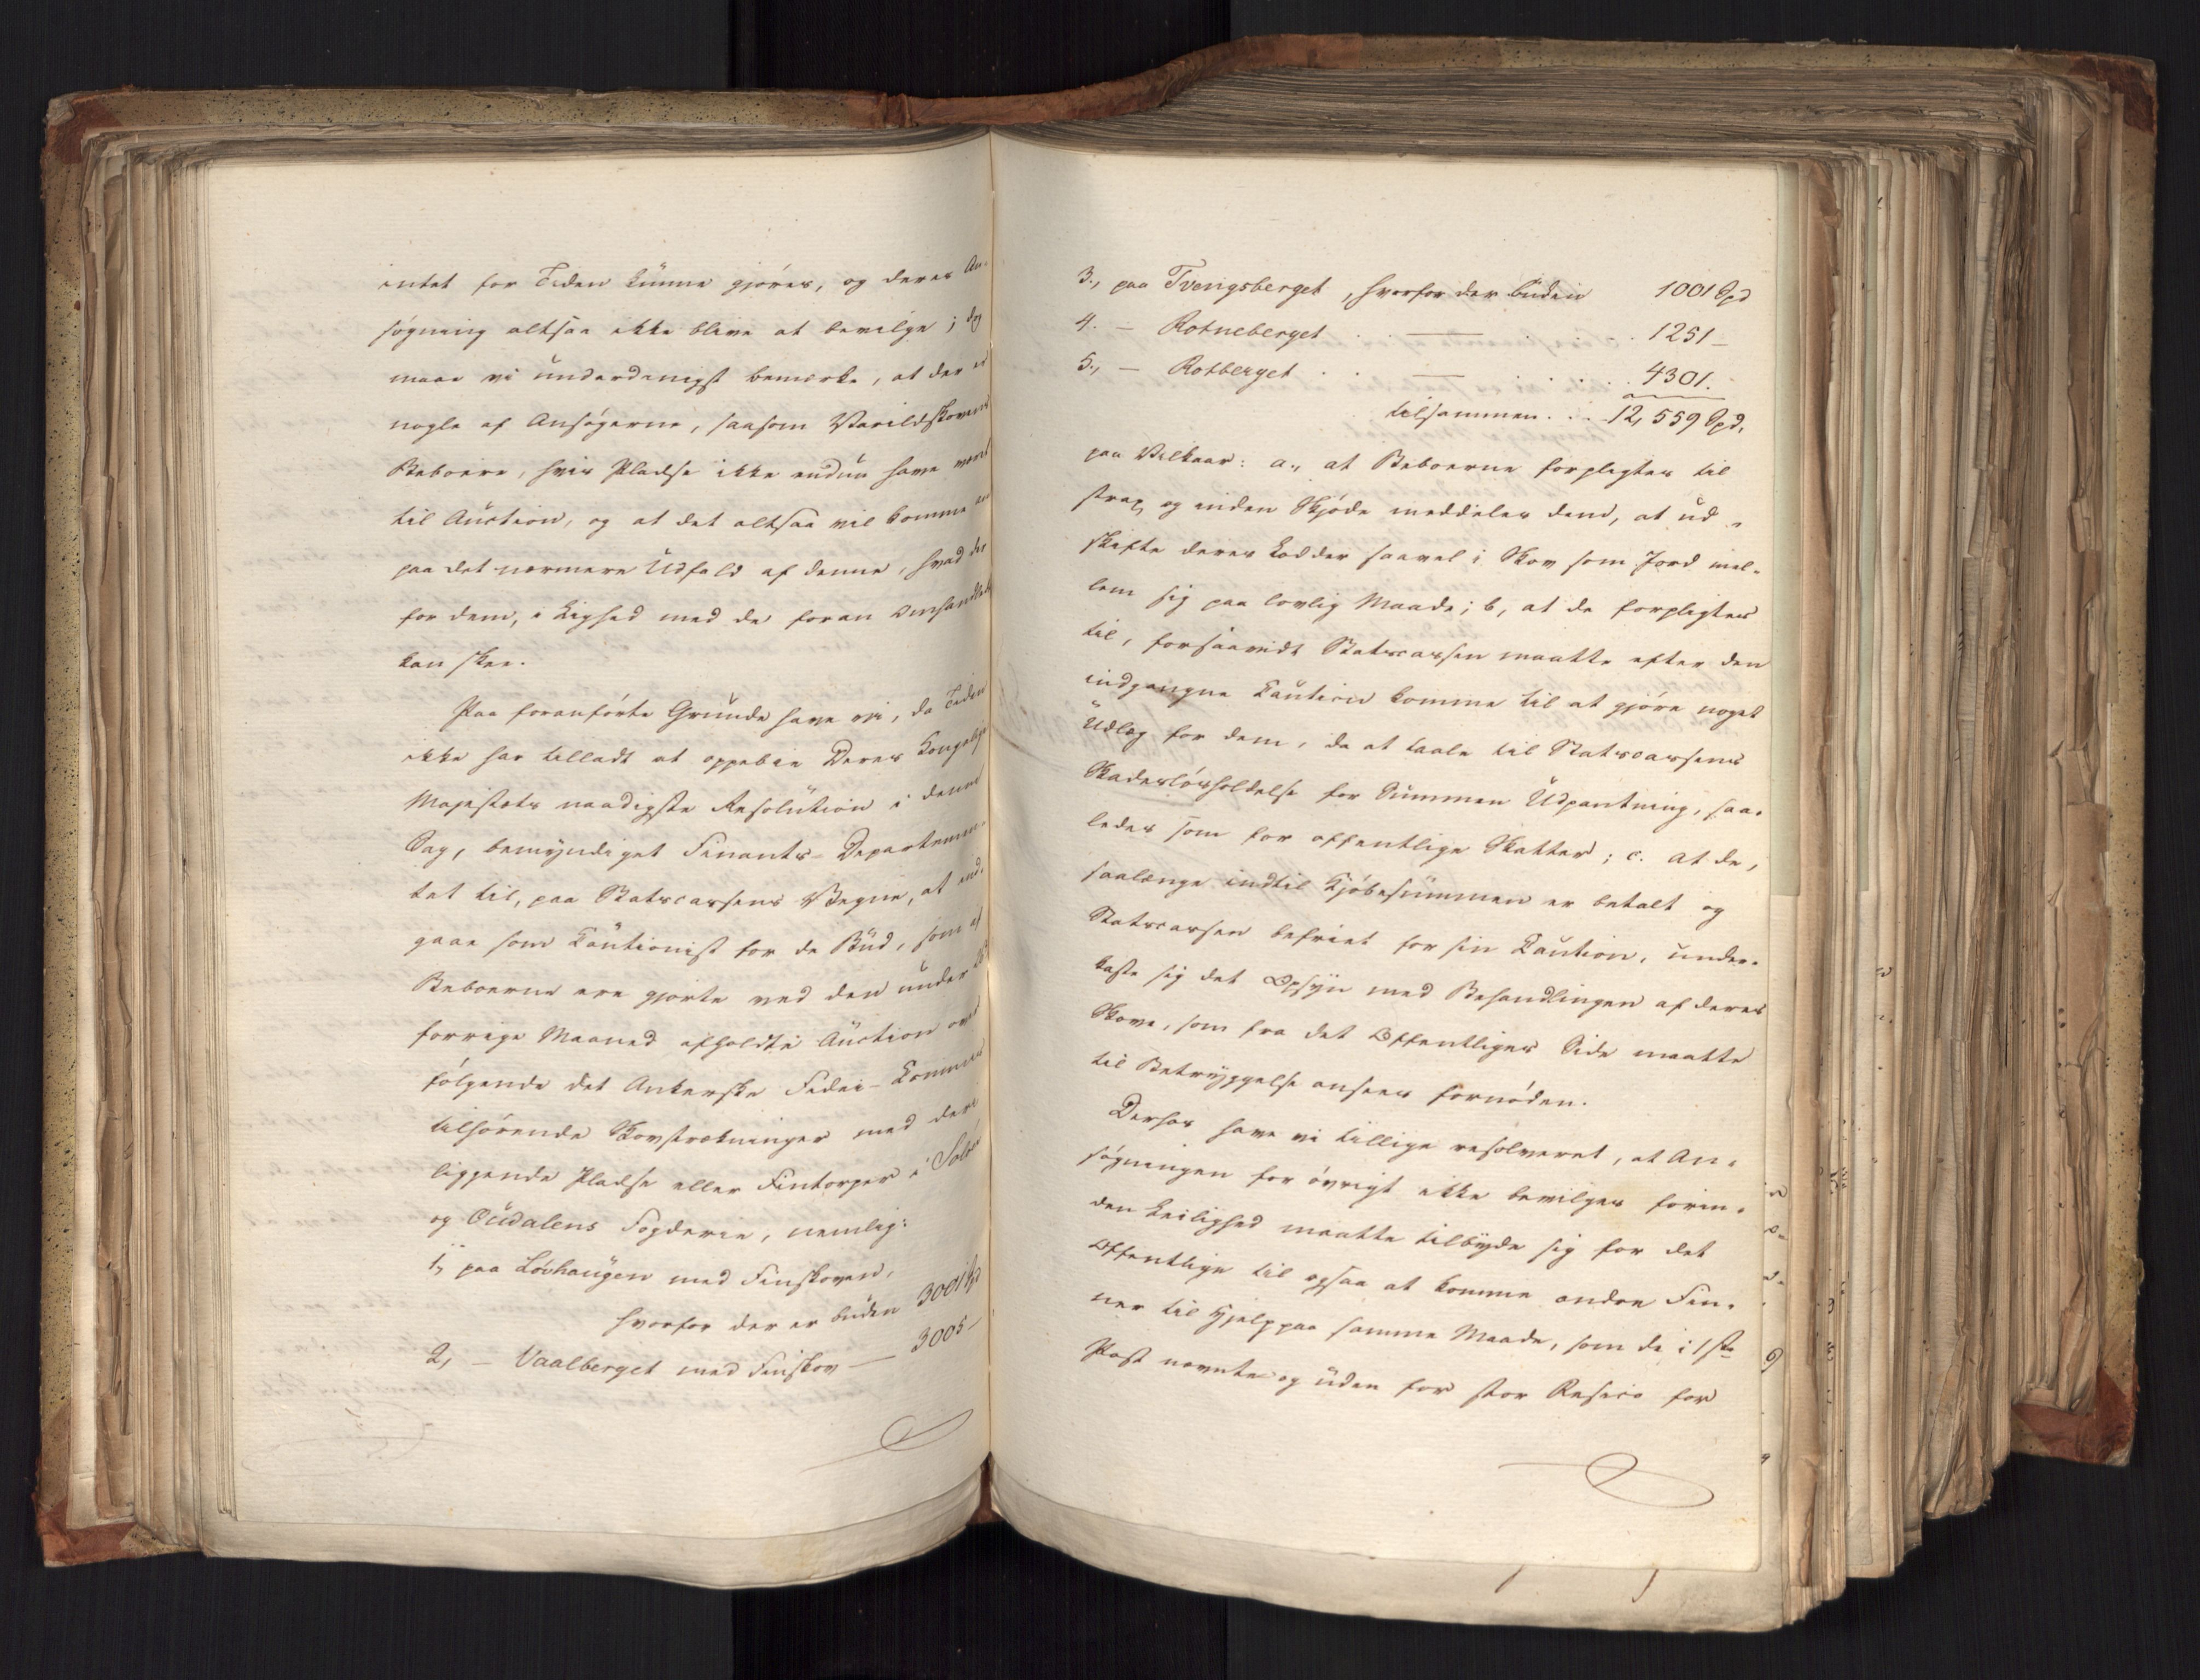 intet for Tiden kunne gjøres, og deres An-
søgning altsaa ikke blive at bevilge; dog
maae vi underdanigst bemærke, at der er
nogle af Ansøgerne, saasom Varildskovens
Beboere, hvis Pladse ikke endnu have været
til Auction, og at det altsaa vil komme an
paa det nærmere Udfald af denne, hvad der
for dem, i Liighed med de foran omhandlede
kan skee.
Paa foranførte Grunde have vi, da Tiden
ikke har tilladt at oppebie Deres Kongelige
Majestæts naadigste Resolution i denne
Sag, bemyndiget Finants-Departemen-
tet til, paa Statscassens Vegne, at ind-
gaae som Cautionist for de Bud, som af
Beboerne ere gjorte ved den under
forrige Maaned afholdte Auction over
følgende det Ankerske Fidei-Commis
tilhørende Skovstrækninger med deri
liggende Pladse eller Fintorper i Solør
og Oudalens Fogderie, nemlig:
1, paa Løvhaugen med Finskoven,
hvorfor der er buden 3001 Spd
2, — Vaalberget med Finskov — 3005 —
3., paa Tvengsberget, hvorfor der buden 1001 Spd
4. — Rotneberget . . — . . . 1251 —
5., — Rotberget . . — . . . . 4301.
tilsammen . . . 12,559 Spd,
paa Vilkaar: a., at Beboerne forpligtes til
strax og inden Skjøde meddeles dem, at ud-
skifte deres Lodder saavel i Skov som Jord mel-
lem sig paa lovlig Maade; b, at de forpligtes
til, forsaavidt Statscassen maatte efter den
indgangne Caution komme til at gjøre noget
Udlæg for dem, da at taale til Statscassens
Skadesløsholdelse for Summen Udpantning, saa-
ledes som for offentlige Skatter; c. at de,
saalænge indtil Kjøbesummen er betalt og
Statscassen befriet for sin Caution, under-
kaste sig det Opsyn med Behandlingen af deres
Skove, som fra det Offentliges Side maatte
til Betryggelse ansees fornøden.
Derhos have vi tillige resolveret, at An-
søgningen for øvrigt ikke bevilges forin-
den Leilighed maatte tilbyde sig for det
Offentlige til ogsaa at komme andre Fin-
ner til Hjelp paa samme Maade, som de i 1ste
Post nævnte og uden for stor Resico for